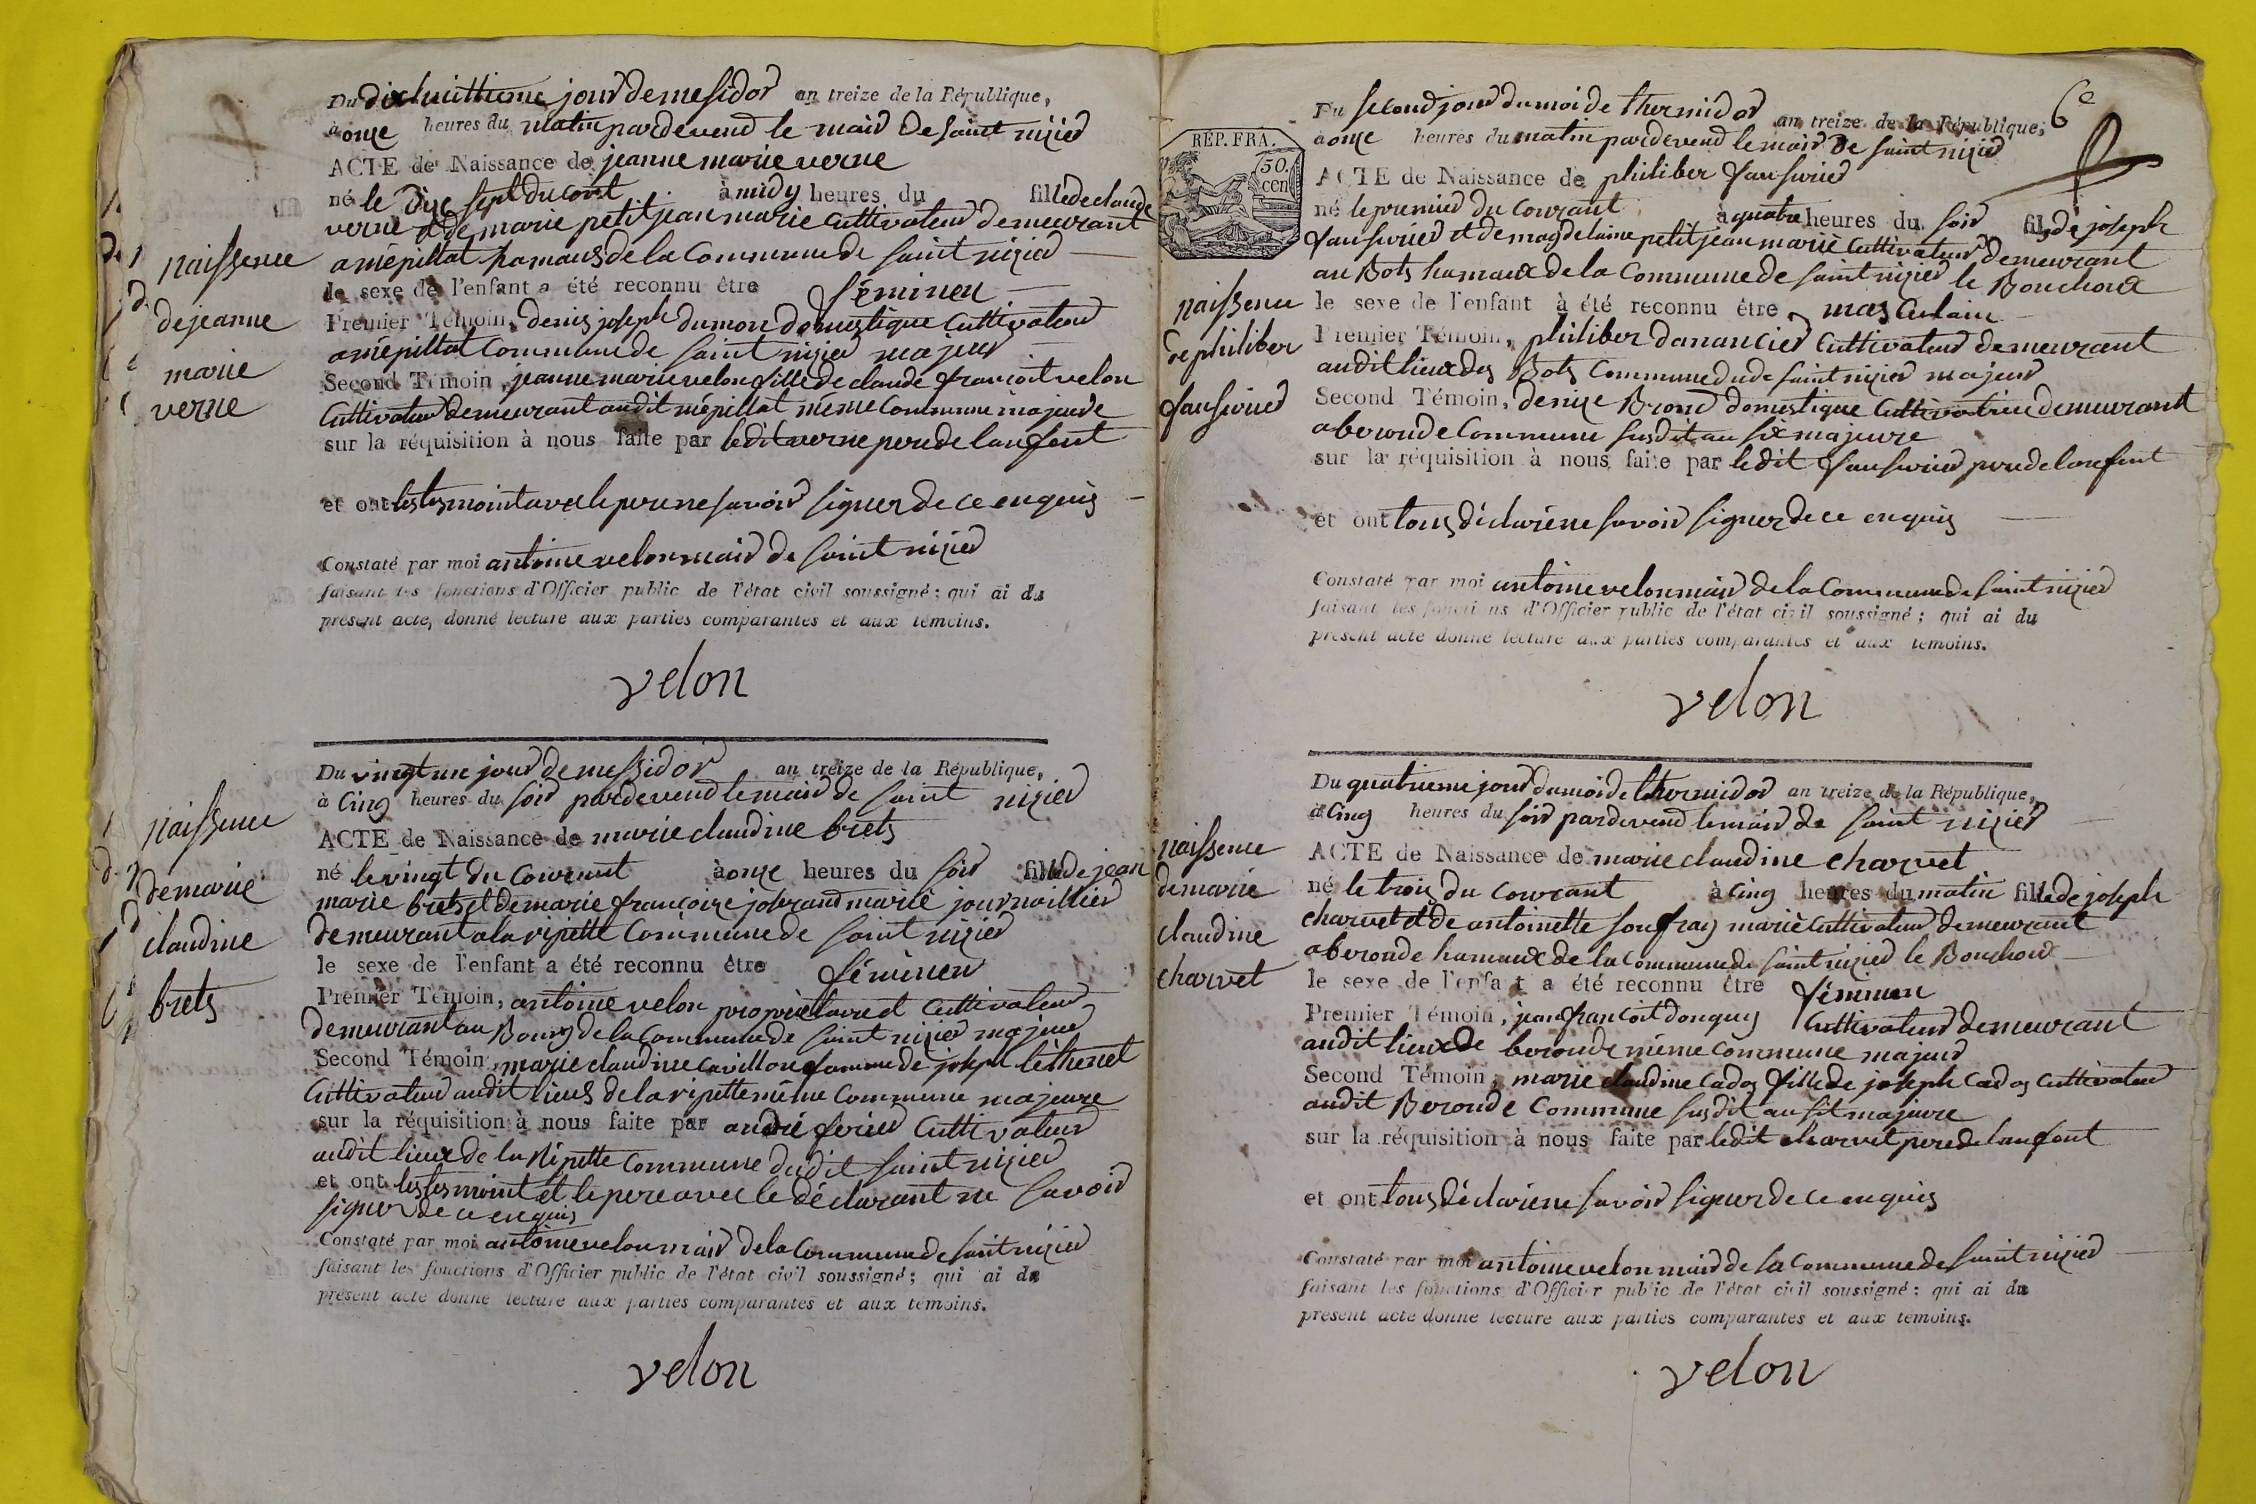 Du dixhuittieme jour de mesidor an treize de la République,
à onze heures du matin pardevend le maid de saint nizied
ACTE de Naissance de jeanne marie verne
né le dix sept du cont à midy heures du fille de claude
verne et de marie petitjean marie cultivateur demeurant
a mépillat hamaus de la Commune de saint nizied
le sexe de l'enfant a été reconnu être féminen
Premier Témoin, denis joseph dumon domestique Cultivateur
a mépillat Commune de saint nizied majeur
Second Témoin, jeanne marie velon fille de claude françoit velon
Cultivateur demeurant audit mépillat méme Commune majeure
sur la réquisition à nous faite par ledit verne pere de lanfent
et ont les tesmoint avec le pere ne savoir signer de ce enquis
Constaté par moi antoine velon maid de saint nizied
faisant les fonctions d'Officier public de l'état civil soussigné; qui ai du
présent acte, donné lecture aux parties comparantes et aux témoins.
velon
naissence
de jeanne
marie
verne
Du vingt une jour de messidor an treize de la République,
à Cinq heures du soir pardevend le maid de saint nizied
ACTE de Naissance de marie claudine brets
né le vingt du Courent à onze heures du soir fille de jean
marie brets et de marie françoise jobrand marié journaillier
demeurant a la ripette Commune de saint nizied
le sexe de l'enfant a été reconnu être féminen
Premier Témoin, antoine velon propriétaire et Cultivateur
demeurant au Bourg de la Commune de saint nizied majeur
Second Témoin, marie claudine cavillon famme de joseph
Cultivateur audit lieus de la ripette méme Commune majeure
sur la réquisition à nous faite par andré ferier Cultivateur
audit lieux de la Ripette Commune dudit saint nizied
et ont les tesmoint et le pere avec le déclarant ne savoir
signer de ce enquis
Constaté par moi antoine velon maid de la Commune de saint nizied
faisant les fonctions d'Officier public de l'état civil soussigné; qui ai du
présent acte donné lecture aux parties comparantes et aux témoins.
velon
naissence
de marie
claudine
brets
6e
Du second jour du moi de thermidor an treize de la République,
à onze heures du matin pardevend le maid de saint nizied
ACTE de Naissance de philiber fausuried
né le premier du Courant à quatre heures du soir fils de joseph
fausuried et de magdelaine petitjean marié Cultivateur demeurant
au Bots hamaux de la Commune de saint nizied le Bouchoux
le sexe de l'enfant à été reconnu être masculain
Premier Témoin, philiber danancier Cultivateur demeurant
audit lieux des Bots Commune dude saint nizied majeur
Second Témoin, denize Brond domestique Cultivatrice demeurant
a beronde Commune susdit ausix majeure
sur la réquisition à nous faite par ledit fausuried pere de lanfent
et ont tous déclaré ne savoir signer de ce enquis
Constaté par moi antoine velon maid de la Commune de saint nizied
faisant les fonctions d'Officier public de l'état civil soussigné; qui ai du
présent acte donné lecture aux parties comparantes et aux témoins.
velon
RÉP. FRA.
50.
cen
naissence
de philiber
fausuried
Du quatrieme jour du mois de thermidor an treize de la République,
à Cinq heures du soir pardevend le maid de saint nizied
ACTE de Naissance de marie claudine charvet
né le trois du courant à Cinq heures du matin fille de joseph
charvet et de antoinette marié Cultivateur demeurant
a beronde hamaux de la Commune de saint nizied le Bouchoux
le sexe de l'enfant a été reconnu être féminen
Premier Témoin, jean françoit donguy Cultivateur demeurant
audit lieux de beronde méme commune majeur
Second Témoin, marie claudine Cados fille de joseph Cados Cultivateur
audit Beronde Commune susdit ausit majeure
sur la réquisition à nous faite par ledit charvet pere de lanfent
et ont tous déclaré ne savoir signer de ce enquis
Constaté par moi antoine velon maid de la Commune de saint nizied
faisant les fonctions d'Officier public de l'état civil soussigné; qui ai du
présent acte donné lecture aux parties comparantes et aux témoins.
velon
naissence
de marie
claudine
charvet